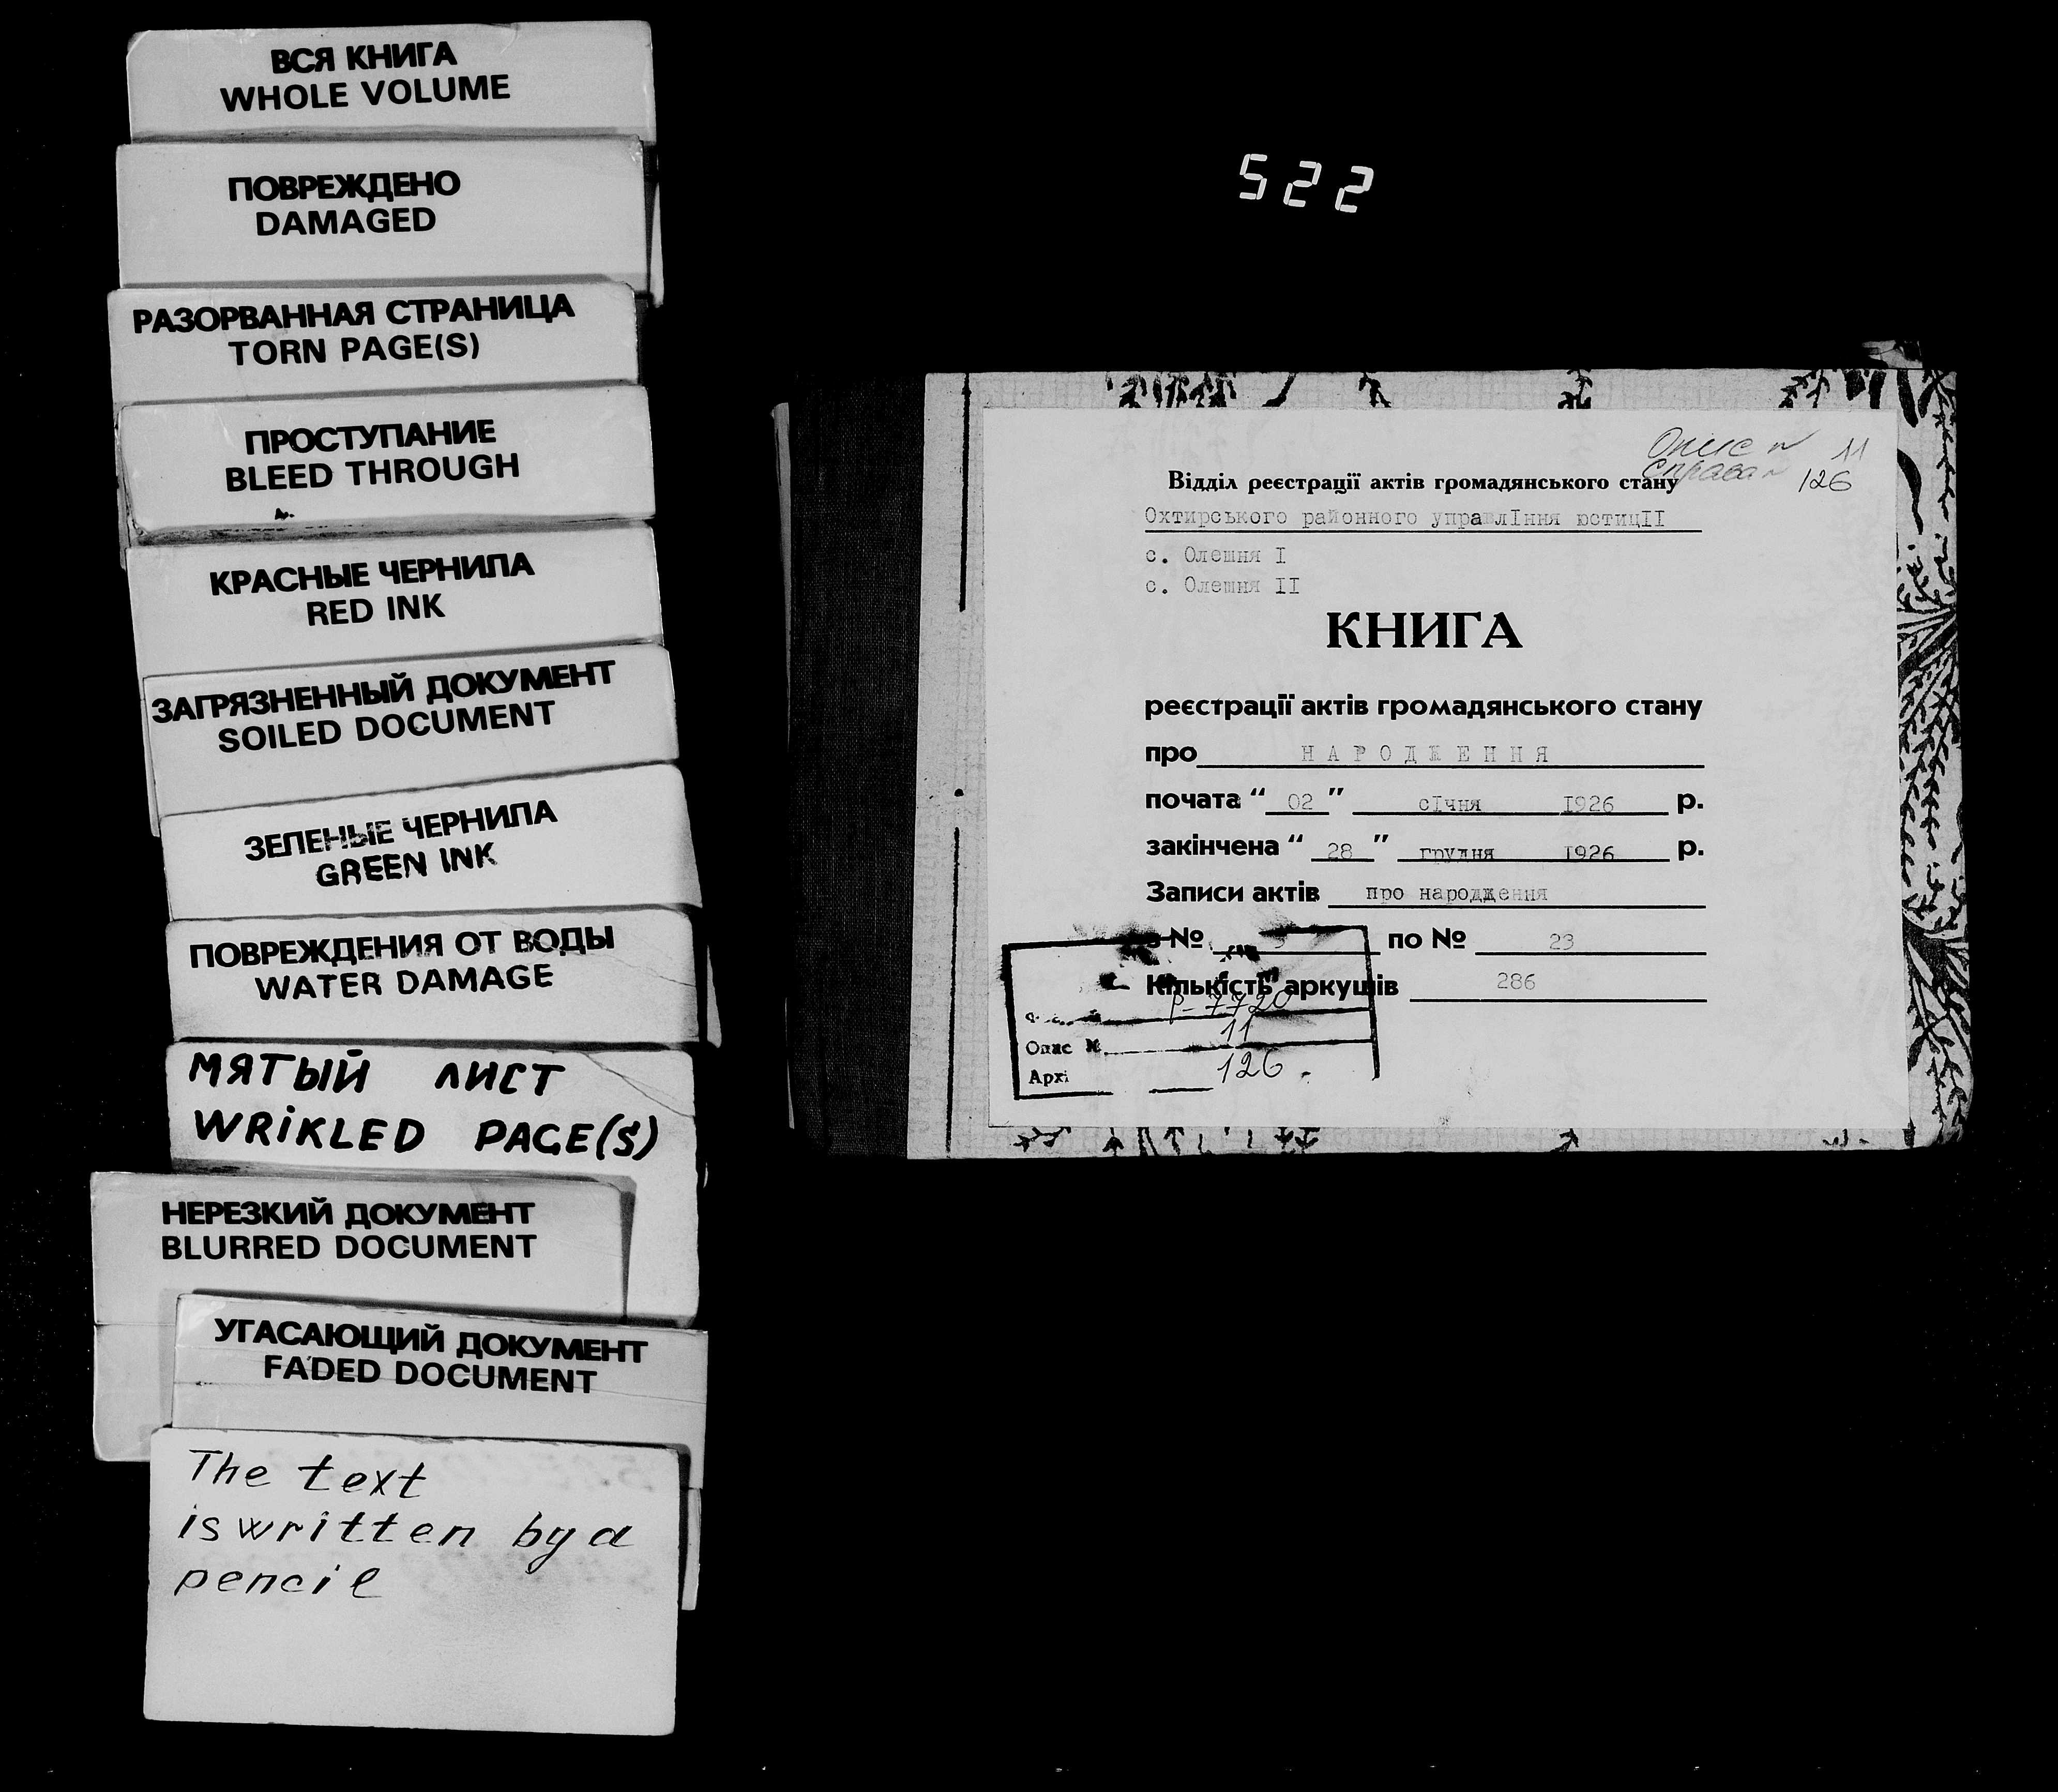 ВСЯ КНИГА
WHOLE VOLUME
ПОВРЕЖДЕНО
DAMAGED
РАЗОРВАННАЯ СТРАНИЦА
TORN PAGE(S)
ПРОСТУПАНИЕ
BLEED THROUGH
КРАСНЫЕ ЧЕРНИЛА
RED INK
ЗАГРЯЗНЕННЫЙ ДОКУМЕНТ
SOILED DOCUMENT
ЗЕЛЕНЫЕ ЧЕРНИЛА
GREEN INK
ПОВРЕЖДЕНИЯ ОТ ВОДЫ
WATER DAMAGE
МЯТЫЙ ЛИСТ
WRiKLED PAGE(S)
НЕРЕЗКИЙ ДОКУМЕНТ
BLURRED DOCUMENT
УГАСАЮЩИЙ ДОКУМЕНТ
FADED DOCUMENT
The text
is written by a
pencil
522
Опис № 11
Справа № 126
Відділ реєстрації актів громадянського стану
Охтирського районного управлIння юстицII
с. Олешня I
с. Олешня II
КНИГА
реєстрації актів громадянського стану
про НАРОДЖЕННЯ
почата “ 02 ” сIчня 1926 р.
закінчена “ 28 ” грудня 1926 р.
Записи актів про народження
№ по № 23
Кількість аркушів 286
Р-7720
Опис № 11
Арх 126